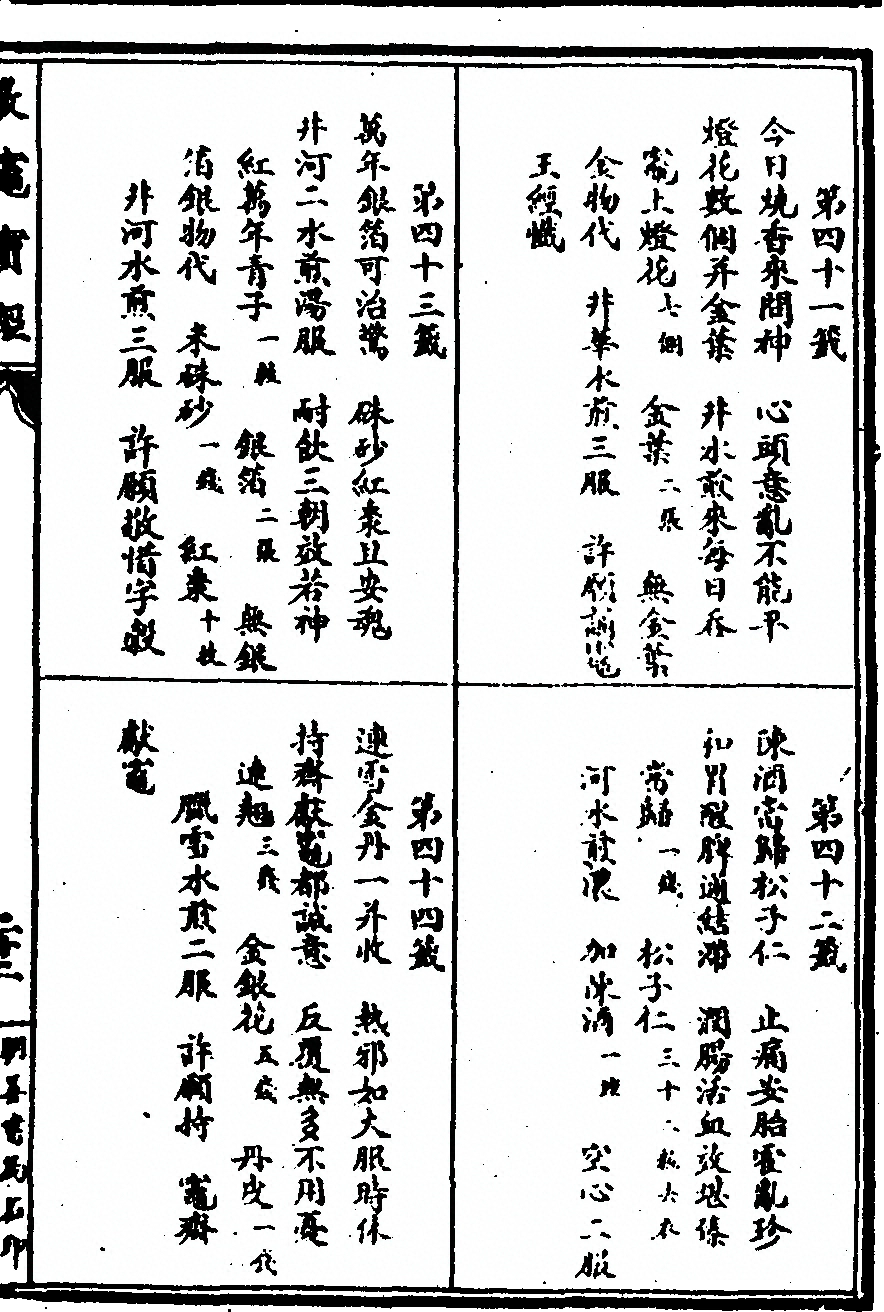 第四十一籤
今日燒香來問神 心頭意亂不能平
燈花數個并金葉 井水煎來每日吞
竈上燈花七個 金葉二張 無金葉
金物代 井華水煎三服 許願誦
玉經懺
第四十二籤
陳酒當歸松子仁 止痛安胎霍亂珍
和胃醒脾通結滯 潤腸活血效堪
當歸一錢 松子仁三十六粒去衣
河水煎濃 加陳酒一 空心二服
第四十三籤
萬年銀箔可治驚 硃砂紅棗且安魂
井河二水煎湯服 耐飲三朝效若神
紅萬年青子一粒 銀箔二張 無銀
箔銀物代 末硃砂一錢 紅棗十枚
井河水煎三服 許願敬惜字穀
第四十四籤
連雪金丹一并收 熱邪如火服時休
持齋獻竈都誠意 反覆無多不用憂
連翹三錢 金銀花五錢 丹皮一錢
臘雪水煎二服 許願持 竈齋
獻竈
敬竈實
明善書局石印